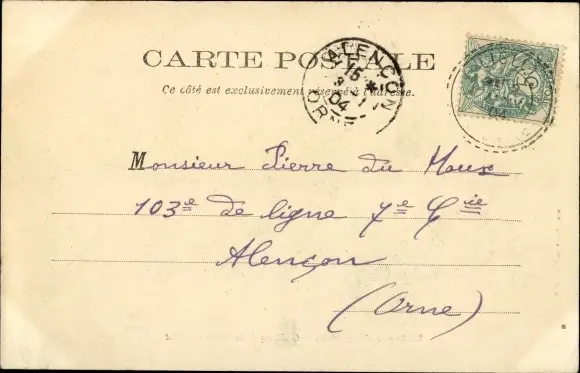 CARTE POSTALE
Ce côté est exclusivement réservé à l'adresse.
ALENÇON
15
04
ORNE
04
Monsieur Pierre du Houx
103e de ligne 7e Cie
Alençon
(Orne)